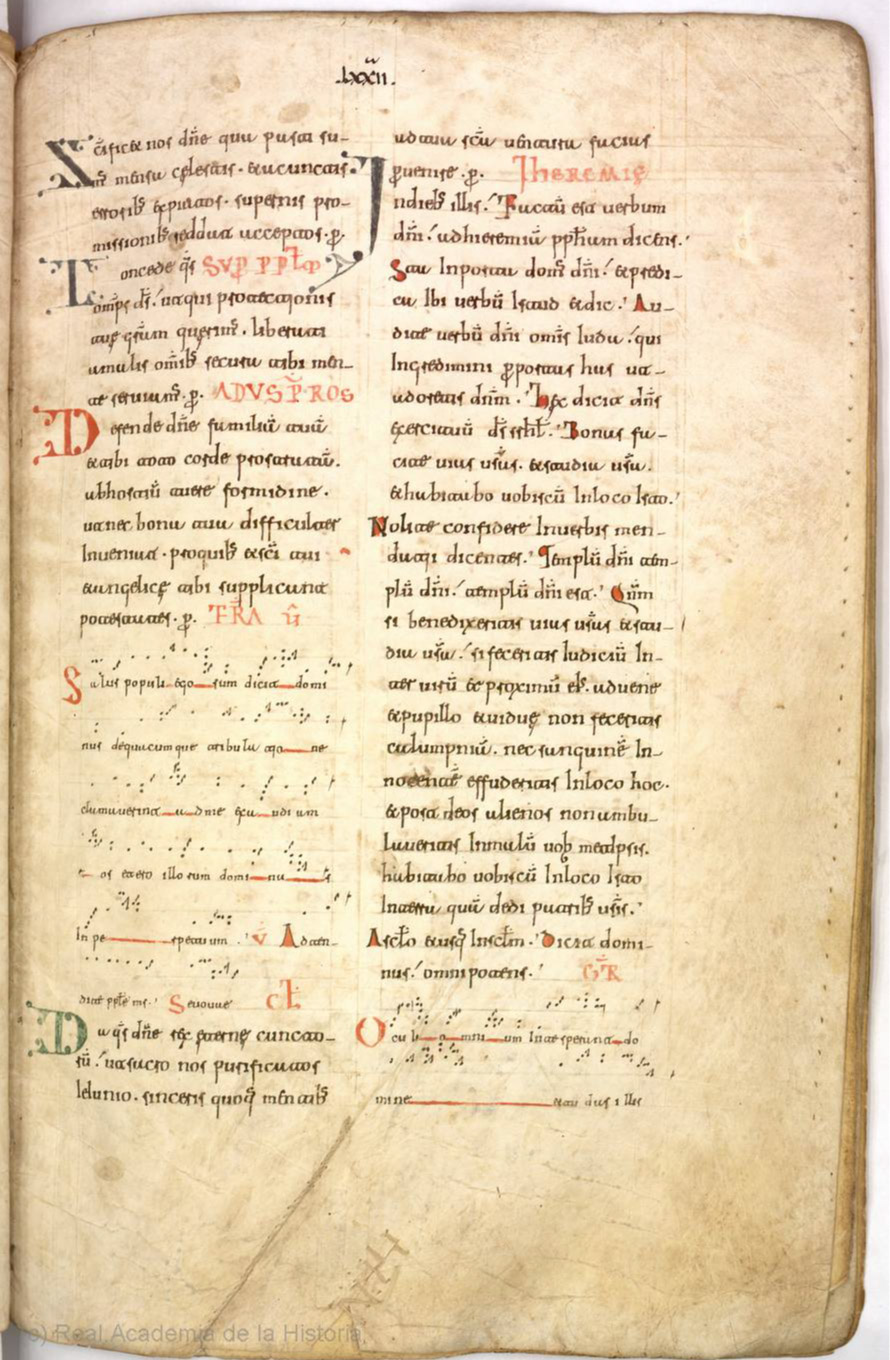 lxxii.
Sc̄ificet nos dn̄e qua pasti su-
m᷒ mensa cęlestis. et a cunctis
erroribꝫ expiatos. supernis pro-
missionibꝫ reddat acceptos. p̄.
Concede q̄s SVP̄ PP̄L̄M
omp̄s ds̄. ut qui protectionis
tuę gr̄am querim᷒. liberati
a malis om̄ibꝫ secura tibi men-
te seruiam᷒. p̄. AD VSP̄ROS
Defende dn̄e familiā tuā
et tibi toto corde prostratā.
ab hostiū tuere formidine.
ut nec bona tua difficultates
Inueniat. pro quibꝫ et sc̄i tui
et angelicę tibi supplicant
potestates. p̄. FR̄A V̄
Salus populi ego sum dicit domi
nus de quacumque tribula tio ne
clamauerint ad me exau diam
e os et ero illorum domi nu s
In pe rpetuum. v Adten-
dite pp̄le ms̄. Seuouae CŁ
Da q̄s dn̄e rex eterne cuncto-
rū. ut sacro nos purificatos
Ieiunio. sinceris quoqꝫ mentibꝫ
ad tua sc̄a uentura facias
p̄uenire. p̄. IHEREMIĘ
Indiebꝫ illis. Factū est uerbum
dn̄i. ad hieremiā pp̄h̄am dicens.
Sta In porta dom᷒ dn̄i. et predi-
ca Ibi uerbū Istud et dic. Au-
dite uerbū dn̄i omīs Iuda. qui
Ingredimini p̄ portas has ut a-
adoretis dn̄m. Hęc dicit dn̄s
exercituū ds̄ isr̄ł. Bonas fa-
cite uias ur̄as. et studia ur̄a.
et habitabo uobiscū In loco Isto.
Nolite confidere In uerbis men-
dacii dicentes. Templū dn̄i tem-
plū dn̄i. templū dn̄i est. Qn̄m
si benedixeritis uias ur̄as et stu-
dia ur̄a. si feceritis Iudiciū In-
ter uirū et proximū ei᷒. aduene
et pupillo et uiduę non feceritis
calumpniā. nec sanguinē In-
nocentē effuderitis In loco hoc.
et post deos alienos non ambu-
laueritis In malū uob̄ metipsis.
habitabo uobiscū In loco Isto
In terra quā dedi patribꝫ ur̄is.
A scł̄o et usqꝫ In scł̄m. Dicit domi-
nus. omnipotens. GR̄
Ocu li o mni um In te sperant do
mine et tu das illis
(c) Real Academia de la Historia.